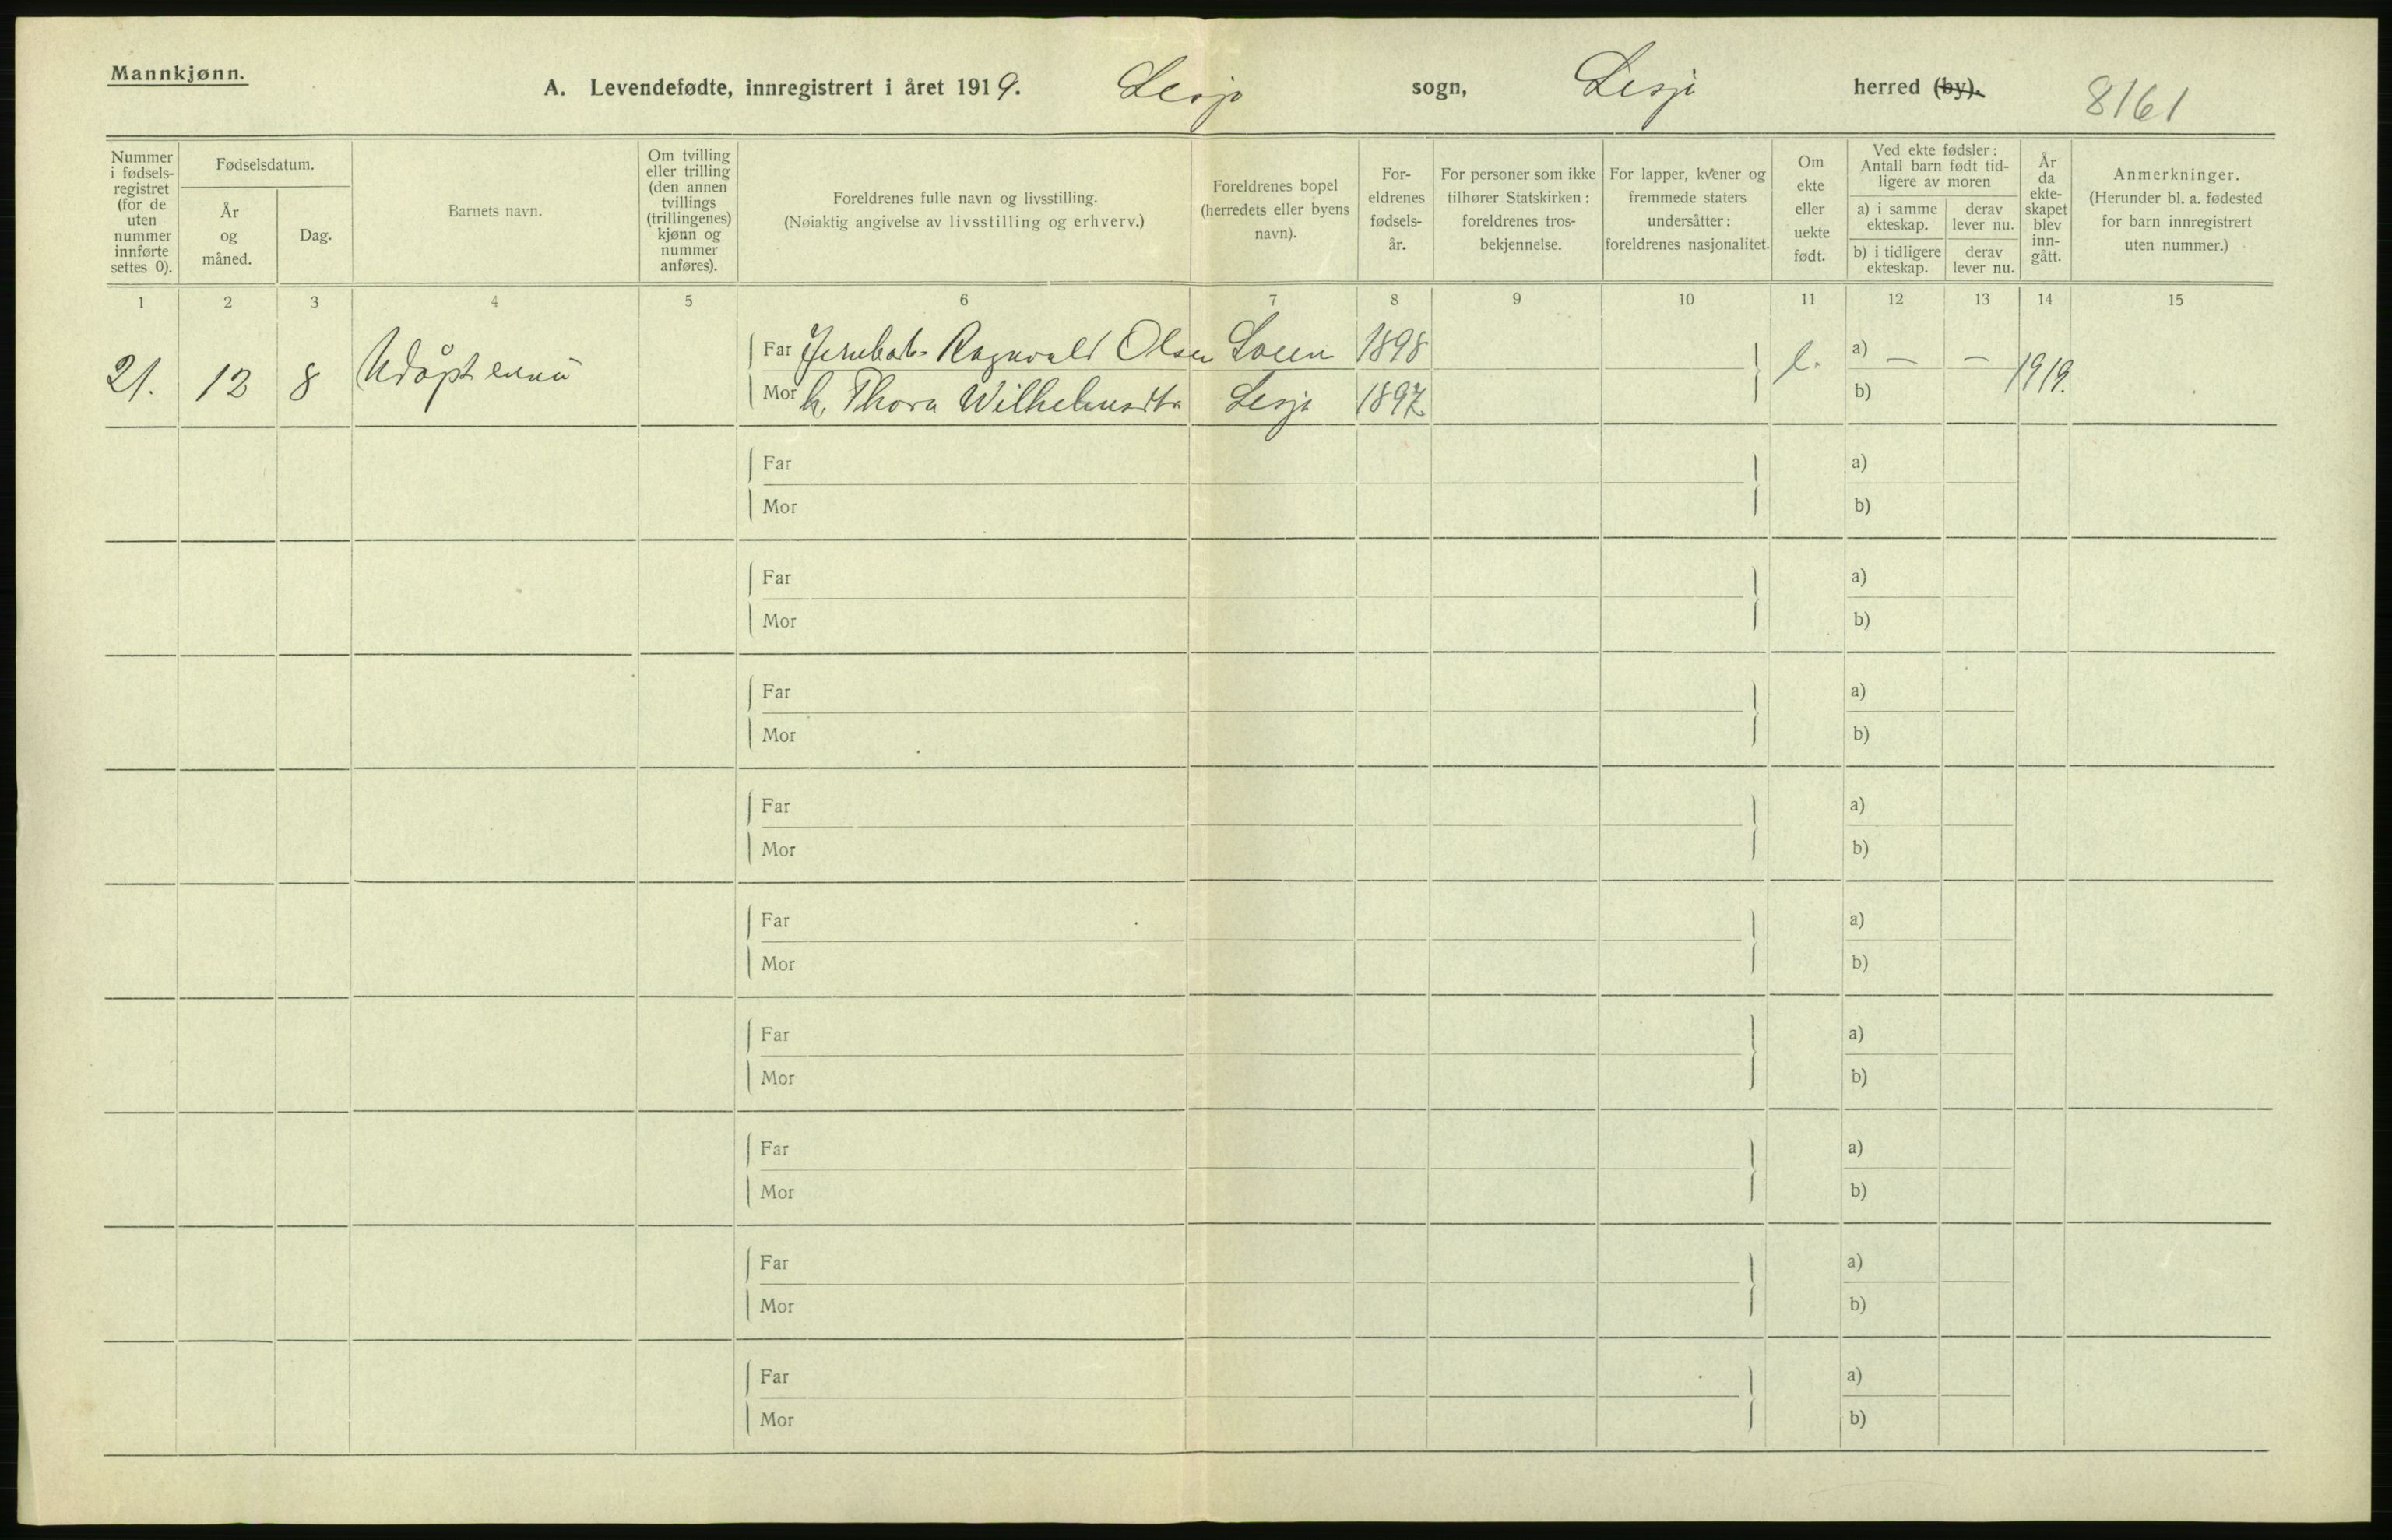 Mannkjønn.
A. Levendefødte, innregistrert i året 1919. Lesja sogn, Lesja herred (by). 8161
Nummer i fødsels-registret (for de uten nummer innførte settes 0).
Fødselsdatum.
År og måned.
Dag.
Barnets navn.
Om tvilling eller trilling (den annen tvillings (trillingenes) kjønn og nummer anføres).
Foreldrenes fulle navn og livsstilling.
(Nøiaktig angivelse av livsstilling og erhverv.)
Foreldrenes bopel (herredets eller byens navn).
For-eldrenes fødsels-år.
For personer som ikke tilhører Statskirken: foreldrenes tros-bekjennelse.
For lapper, kvener og fremmede staters undersåtter: foreldrenes nasjonalitet.
Om ekte eller uekte født.
Ved ekte fødsler: Antall barn født tid-ligere av moren
a) i samme ekteskap.
derav lever nu.
b) i tidligere ekteskap.
derav lever nu.
År da ekte-skapet blev inn-gått.
Anmerkninger.
(Herunder bl. a. fødested for barn innregistrert uten nummer.)
1 2 3 4 5 6 7 8 9 10 11 12 13 14 15
21. 12 8 Udøpt ennu
Far Ragnvald Olsen 1898 a) — —
Mor h. Thora Lesja 1897 e. b) 1919.
Far a)
Mor b)
Far a)
Mor b)
Far a)
Mor b)
Far a)
Mor b)
Far a)
Mor b)
Far a)
Mor b)
Far a)
Mor b)
Far a)
Mor b)
Far a)
Mor b)